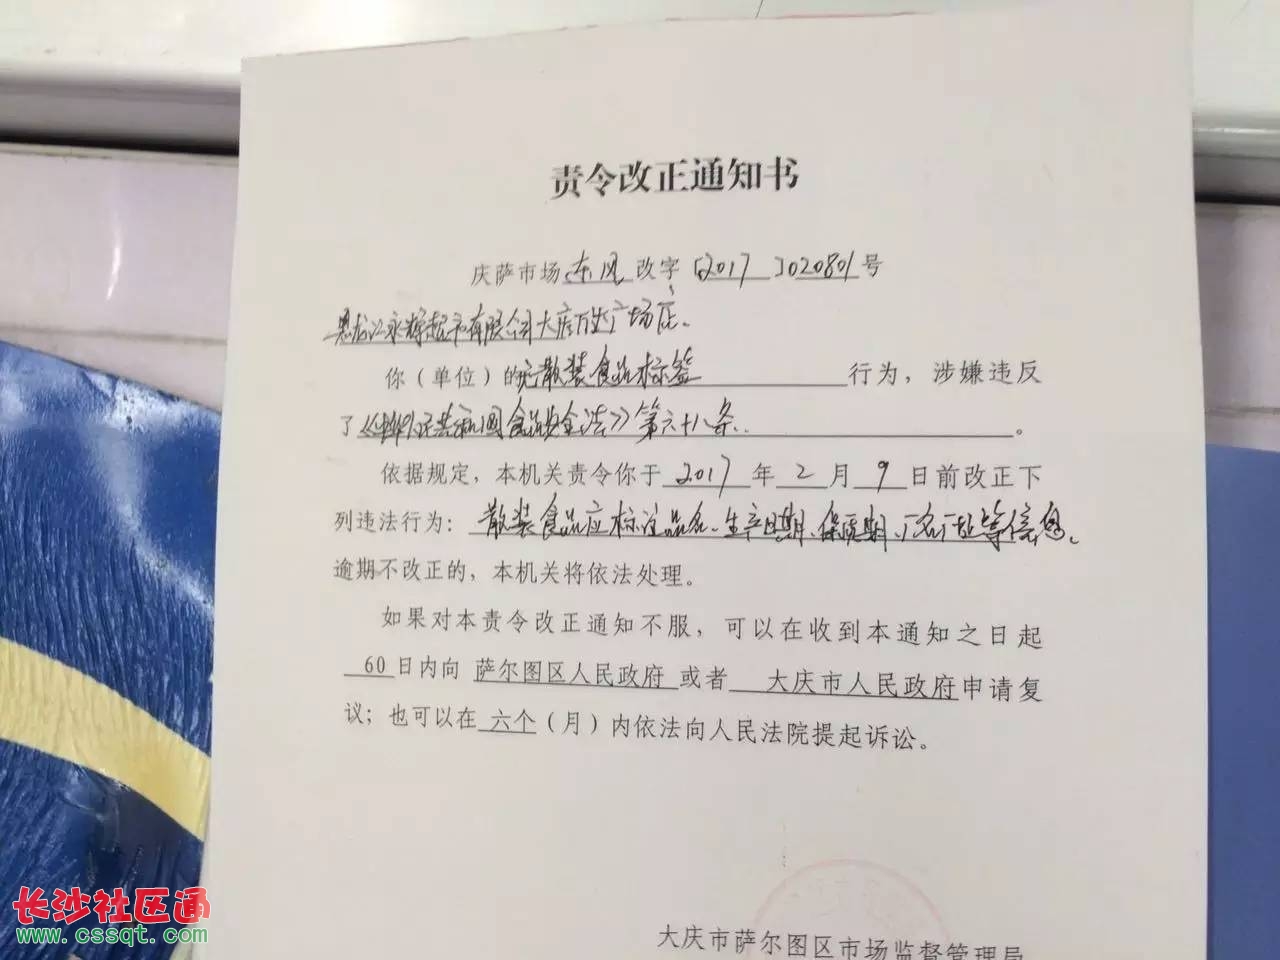 责令改正通知书
庆萨市场东风改字〔2017〕020801号
黑龙江永辉超市有限公司大庆万达广场店、
你（单位）的无散装食品标签行为，涉嫌违反
了《中华人民共和国食品安全法》第六十八条。
依据规定，本机关责令你于2017年2月9日前改正下
列违法行为：散装食品应标注品名、生产日期、保质期、厂名厂址等信息。
逾期不改正的，本机关将依法处理。
如果对本责令改正通知不服，可以在收到本通知之日起
60日内向萨尔图区人民政府或者大庆市人民政府申请复
议；也可以在六个（月）内依法向人民法院提起诉讼。
大庆市萨尔图区市场监督管理局
长沙社区通
www.cssqt.com